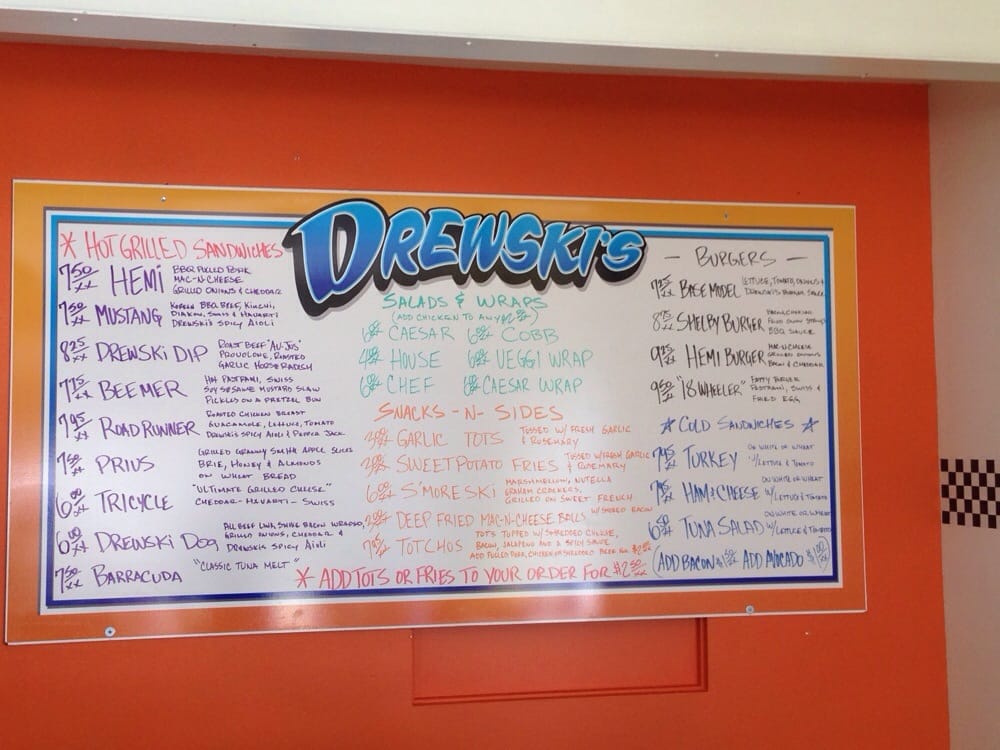 DREWSKI'S
* HOT GRILLED SANDWICHES
7.50 HEMI BBQ PULLED PORK
MAC-N-CHEESE
GRILLED ONIONS & CHEDDAR
7.50 MUSTANG KOREAN BBQ BEEF, KIMCHI,
DIAKON, SWISS & HAVARTI
DREWSKI'S SPICY AIOLI
8.25 DREWSKI DIP ROAST BEEF "AU-JUS"
PROVOLONE, ROASTED
GARLIC HORSERADISH
7.75 BEEMER HOT PASTRAMI, SWISS
SOY SESAME MUSTARD SLAW
PICKLES ON A PRETZEL BUN
7.95 ROADRUNNER ROASTED CHICKEN BREAST
GUACAMOLE, LETTUCE, TOMATO
DREWSKIS SPICY AIOLI & PEPPER JACK
7.50 PRIUS GRILLED GRANNY SMITH APPLE SLICES
BRIE, HONEY & ALMONDS
ON WHEAT BREAD
6.00 TRICYCLE "ULTIMATE GRILLED CHEESE"
CHEDDAR - HAVARTI - SWISS
6.00 DREWSKI DOG ALL BEEF LINK, BACON WRAPPED,
GRILLED ONIONS, CHEDDAR &
DREWSKIS SPICY AIOLI
7.50 BARRACUDA "CLASSIC TUNA MELT"
SALADS & WRAPS
(ADD CHICKEN TO ANY
CAESAR
COBB
HOUSE
VEGGI WRAP
CHEF
CAESAR WRAP
SNACKS -N- SIDES
GARLIC TOTS TOSSED W/ FRESH GARLIC
& ROSEMARY
SWEET POTATO FRIES TOSSED W/ FRESH GARLIC
& ROSEMARY
6.00 S'MORESKI MARSHMELLOW, NUTELLA
GRAHAM CRACKERS,
GRILLED ON SWEET FRENCH
DEEP FRIED MAC-N-CHEESE BALLS W/ BACON
TOTCHOS TOTS TOPPED W/ SHREDDED CHEESE,
BACON, JALAPENO AND A SPICY SAUCE
ADD PULLED PORK, CHICKEN OR SHREDDED BEEF
* ADD TOTS OR FRIES TO YOUR ORDER FOR $2.50
- BURGERS -
7.25 BASE MODEL LETTUCE, TOMATO, ONIONS &
DREWSKI'S BURGER SAUCE
8.75 SHELBY BURGER
FRIED ONION STRINGS
BBQ SAUCE
9.25 HEMI BURGER MAC-N-CHEESE
GRILLED ONIONS
BACON & CHEDDAR
9.50 "18 WHEELER" PATTY BURGER
PASTRAMI, SWISS &
FRIED EGG
* COLD SANDWICHES *
7.45 TURKEY ON WHITE OR WHEAT
W/ LETTUCE & TOMATO
HAM & CHEESE ON WHITE OR WHEAT
W/ LETTUCE & TOMATO
TUNA SALAD ON WHITE OR WHEAT
W/ LETTUCE & TOMATO
ADD BACON $1.50 ADD AVOCADO $1.00